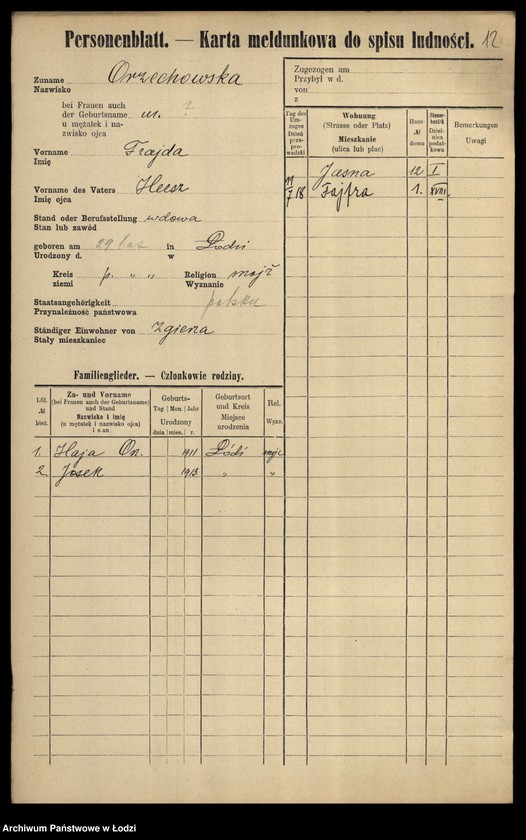 Personenblatt. — Karta meldunkowa do spisu ludności. 12
Zuname Orzechowska
Nazwisko
bei Frauen auch
der Geburtsname m. ?
u mężatek i na-
zwisko ojca
Vorname Frajda
Imię
Vorname des Vaters Hersz
Imię ojca
Stand oder Berufsstellung wdowa
Stan lub zawód
geboren am 29 lat in Łodzi
Urodzony d. w
Kreis p. " " Religion mojż
ziemi Wyznanie
Staatsangehörigkeit polska
Przynależność państwowa
Ständiger Einwohner von Zgierza
Stały mieszkaniec
Zugezogen am
Przybył w d.
von
z
Tag des Um-zuges Dzień prze-pro-wadzki
Wohnung (Strasse oder Platz) Mieszkanie (ulica lub plac)
Haus- № domu
Steuer-bezirk Dziel-nica podat-kowa
Bemerkungen Uwagi
Jasna 12 I
11/7 18 Fajfra 1. XVIII
Familienglieder. — Członkowie rodziny.
Lfd. № bież.
Zu- und Vorname (bei Frauen auch der Geburtsname) und Stand Nazwisko i imię (u mężatek i nazwisko ojca) i stan
Geburts- Tag | Mon. | Jahr Urodzony dnia | mies. | r.
Geburtsort und Kreis Miejsce urodzenia
Rel. Wyzn.
1. Haja On. 1911 Łódź mojż
2. Josek 1913 " "
Archiwum Państwowe w Łodzi